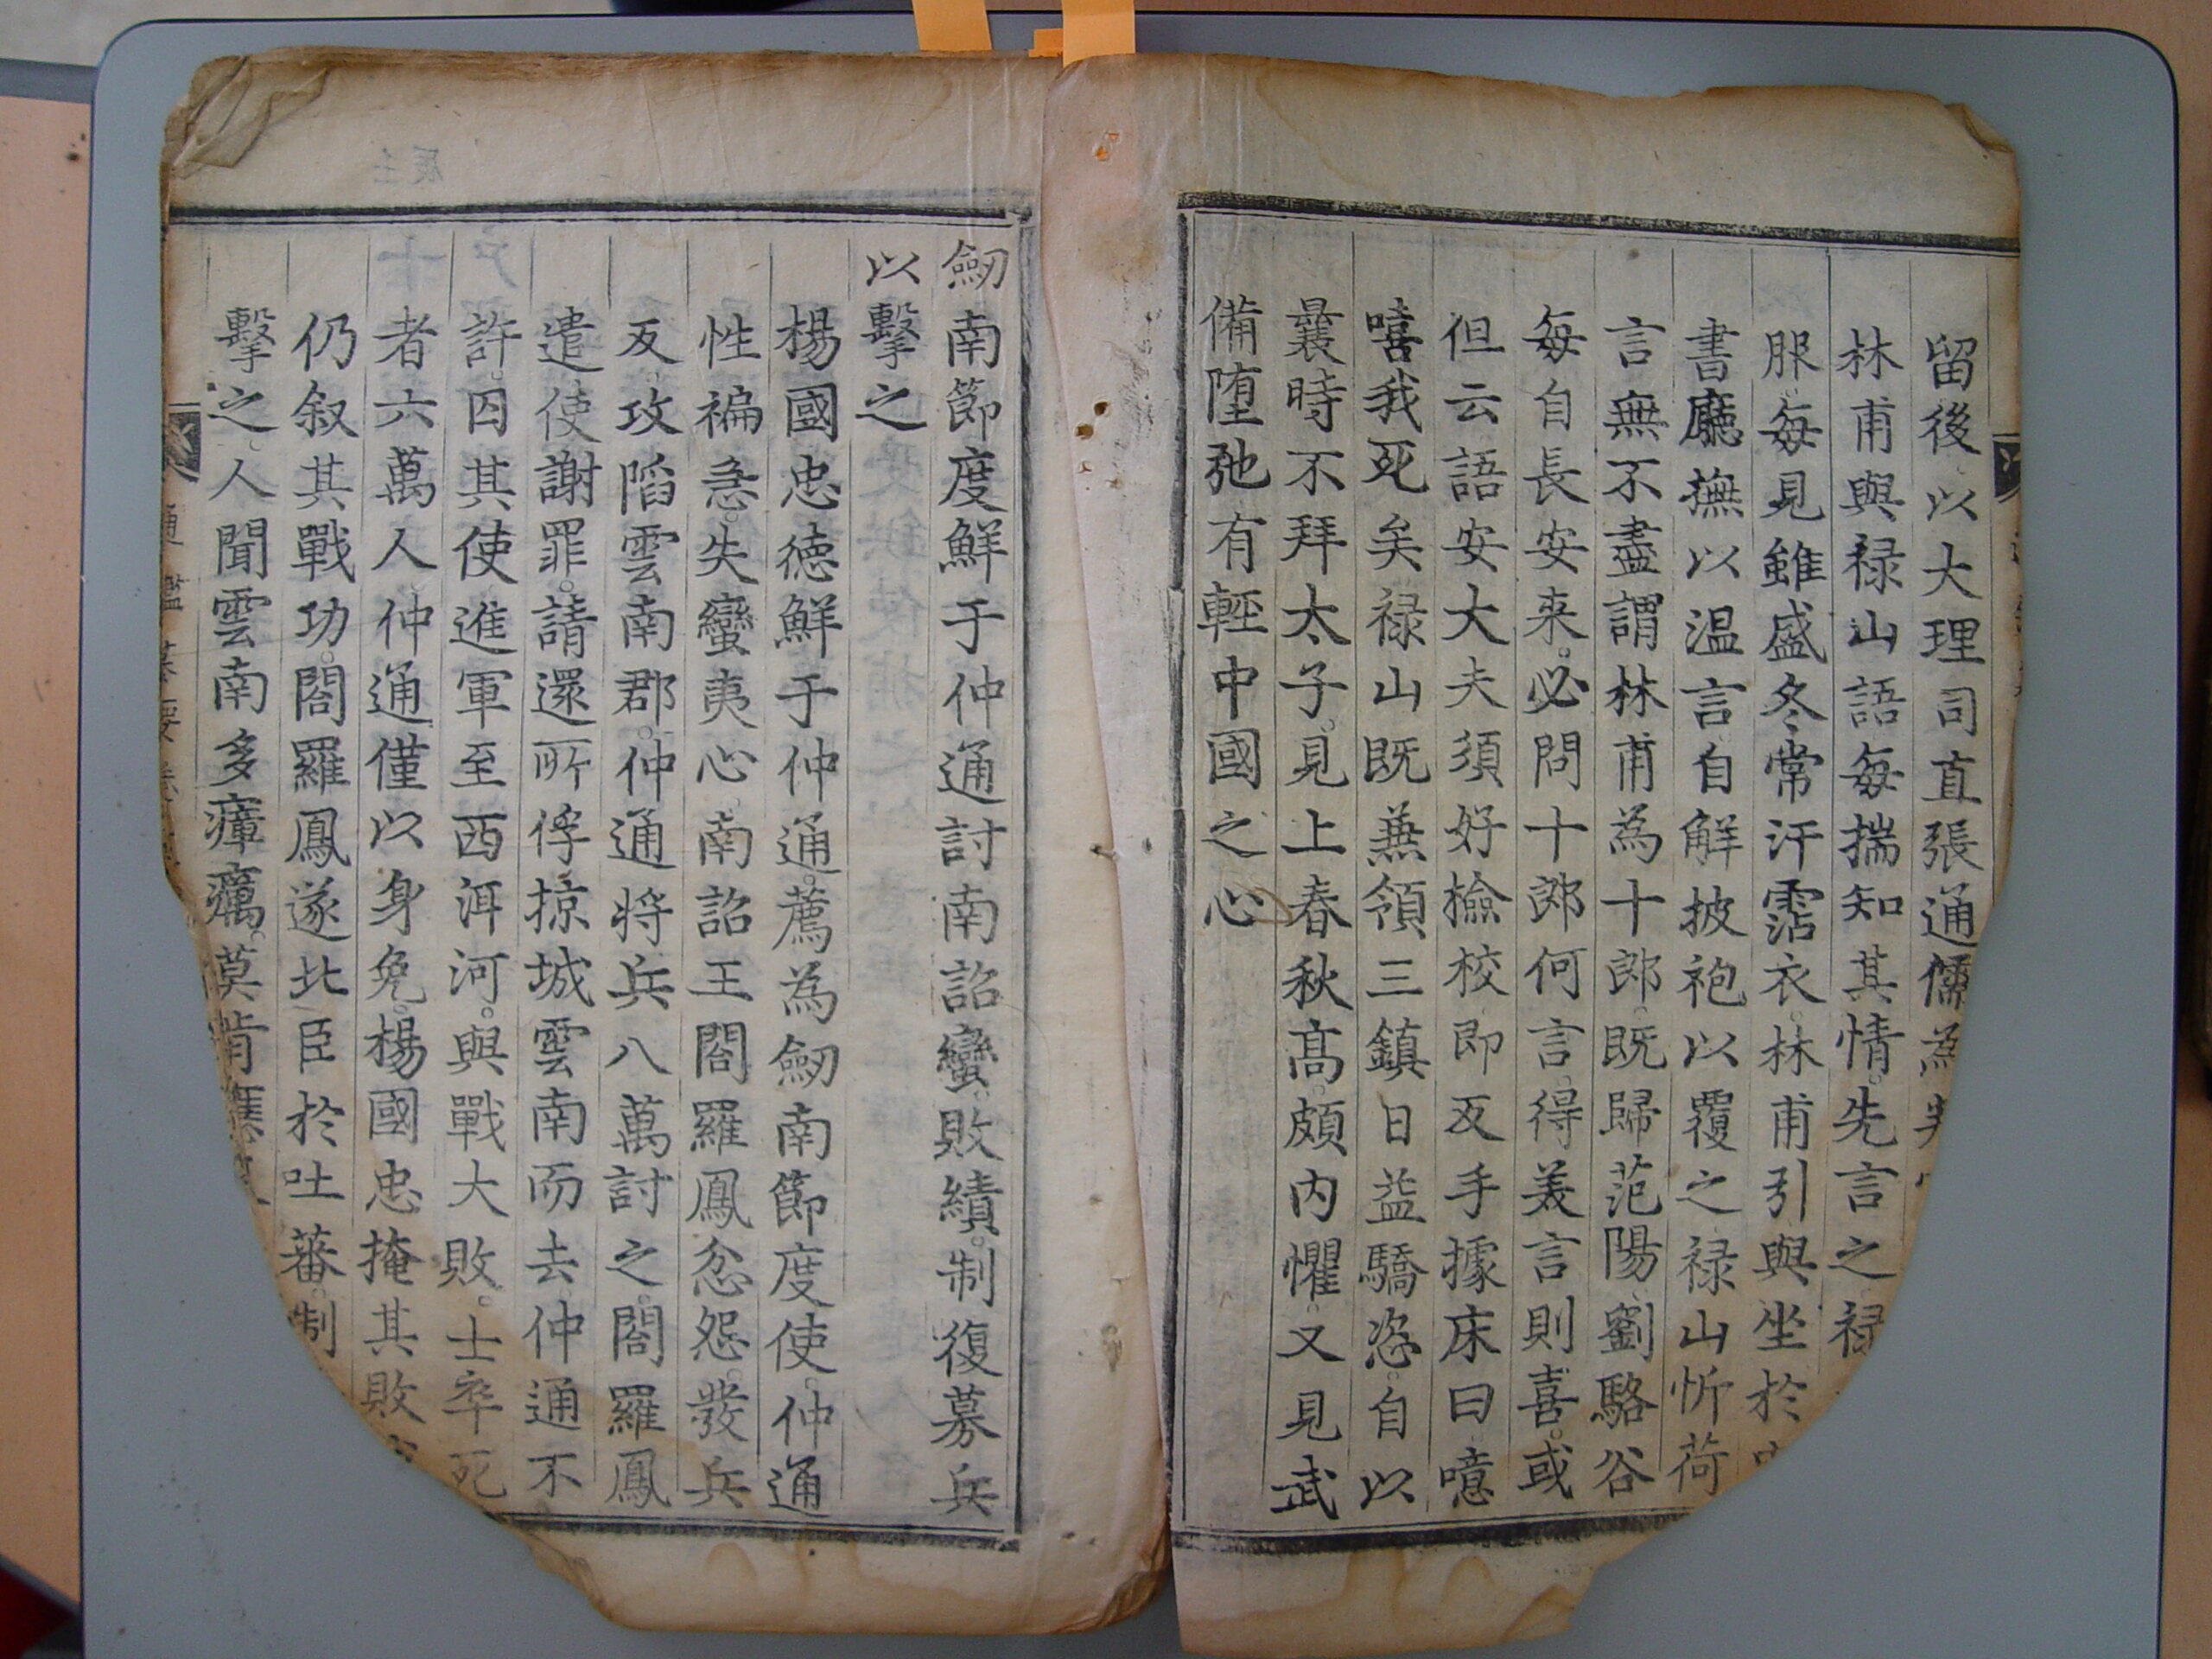 留後以大理司直張通儒為判
林甫與禄山語每揣知其情先言之禄
服每見雖盛冬常汗霑衣林甫引與坐於中
書廳撫以温言自解披袍以覆之禄山忻荷
言無不盡謂林甫為十郎既歸范陽劉駱谷
每自長安来必問十郎何言得美言則喜或
但云語安大夫須好檢校即反手據床曰噫
嘻我死矣禄山既兼領三鎮日益驕恣自以
曩時不拜太子見上春秋髙頗内懼又見武
備堕弛有輕中國之心
劒南節度鮮于仲通討南詔蠻敗績制復募兵
以擊之
楊國忠徳鮮于仲通薦為劒南節度使仲通
性褊急失蠻夷心南詔王閤羅鳳忿怨發兵
反攻陷雲南郡仲通將兵八萬討之閤羅鳳
遣使謝罪請還所俘掠城雲南而去仲通不
許囚其使進軍至西洱河與戰大敗士卒死
者六萬人仲通僅以身免楊國忠掩其敗
仍叙其戰功閤羅鳳遂北臣於吐蕃制
擊之人聞雲南多瘴癘莫肯應募
通鑑纂要卷